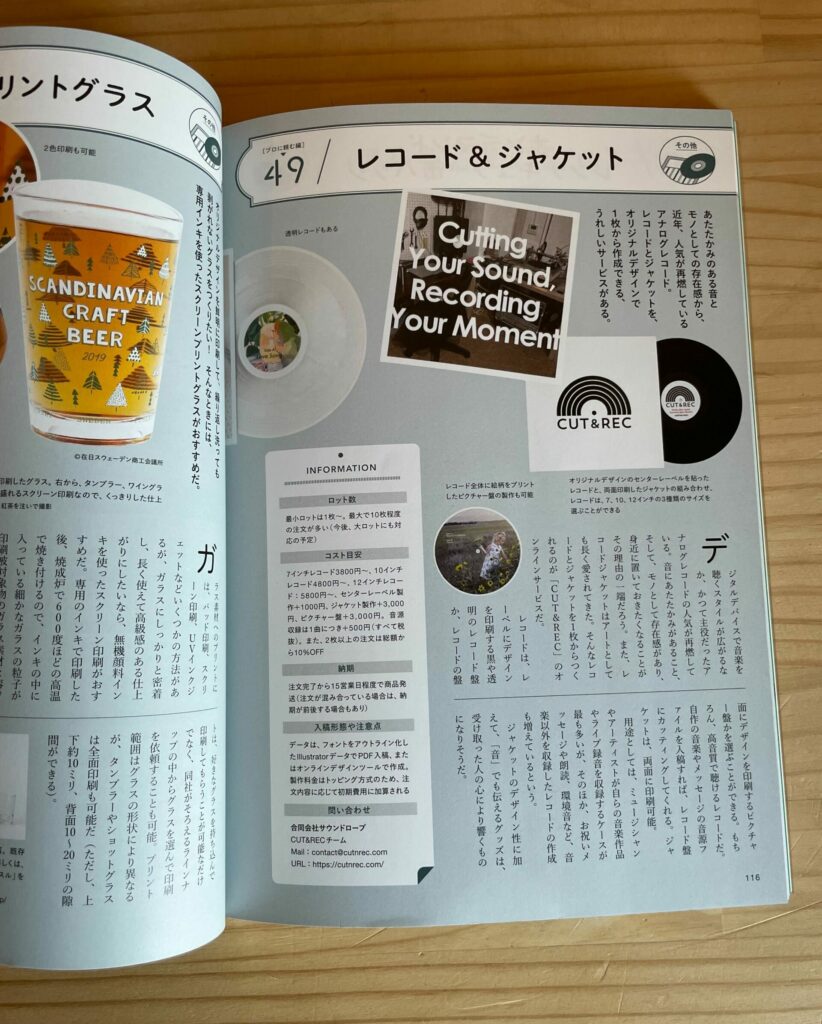 リントグラス
その他
2色印刷も可能
オリジナルデザインを鮮明に印刷して、繰り返し洗っても
剥がれないグラスをつくりたい！ そんなときには、
専用インキを使ったスクリーンプリントグラスがおすすめだ。
SCANDINAVIAN
CRAFT
BEER
2019
©在日スウェーデン商工会議所
印刷したグラス。右から、タンブラー、ワイングラ
盛れるスクリーン印刷なので、くっきりした仕上
紅茶を注いで撮影
ガラス素材へのプリントに
は、パッド印刷、スクリ
ーン印刷、UVインクジ
ェットなどいくつかの方法があ
るが、ガラスにしっかりと密着
し、長く使えて高級感のある仕上
がりにしたいなら、無機顔料イン
キを使ったスクリーン印刷がおす
すめだ。専用のインキで印刷した
後、焼成炉で600度ほどの高温
で焼き付けるので、インキの中に
入っている細かなガラスの粒子が
は、好きなグラスを持ち込んで
印刷してもらうことが可能なだけ
でなく、同社がそろえるラインナ
ップの中からグラスを選んで印刷
を依頼することも可能。プリント
範囲はグラスの形状により異なる
が、タンブラーやショットグラス
は全面印刷も可能だ（ただし、上
下約10ミリ、背面10〜20ミリの隙
間ができる）。
[プロに頼む編]
49
レコード＆ジャケット
その他
透明レコードもある
Cutting
Your Sound,
Recording
Your Moment
あたたかみのある音と
モノとしての存在感から、
近年、人気が再燃している
アナログレコード。
レコードとジャケットを、
オリジナルデザインで
1枚から作成できる、
うれしいサービスがある。
CUT&REC
CUT&REC
レコード全体に絵柄をプリント
したピクチャー盤の製作も可能
オリジナルデザインのセンターレーベルを貼った
レコードと、両面印刷したジャケットの組み合わせ。
レコードは、7、10、12インチの3種類のサイズを
選ぶことができる
INFORMATION
ロット数
最小ロットは1枚〜。最大で10枚程度
の注文が多い（今後、大ロットにも対
応の予定）
コスト目安
7インチレコード3800円〜、10インチ
レコード4800円〜、12インチレコー
ド：5800円〜、センターレーベル製
作+1000円、ジャケット製作+3,000
円、ピクチャー盤+3,000円。音源
収録は1曲につき+500円（すべて税
抜）。また、2枚以上の注文は総額か
ら10％OFF
納期
注文完了から15営業日程度で商品発
送（注文が混み合っている場合は、納
期が前後する場合もあり）
入稿形態や注意点
データは、フォントをアウトライン化し
たIllustratorデータでPDF入稿、また
はオンラインデザインツールで作成。
製作料金はトッピング方式のため、注
文内容に応じて初期費用に加算される
問い合わせ
合同会社サウンドロープ
CUT&RECチーム
Mail：contact@cutnrec.com
URL：https://cutnrec.com/
デジタルデバイスで音楽を
聴くスタイルが広がるな
か、かつて主役だったア
ナログレコードの人気が再燃して
いる。音にあたたかみがあること、
そして、モノとして存在感があり、
身近に置いておきたくなることが
その理由の一端だろう。また、レ
コードジャケットはアートとして
も長く愛されてきた。そんなレコ
ードとジャケットを1枚からつく
れるのが「CUT&REC」のオ
ンラインサービスだ。
レコードは、レ
ーベルにデザイン
を印刷する黒や透
明のレコード盤
か、レコードの盤
面にデザインを印刷するピクチャ
ー盤かを選ぶことができる。もち
ろん、高音質で聴けるレコードだ。
自作の音楽やメッセージの音源フ
ァイルを入稿すれば、レコード盤
にカッティングしてくれる。ジャ
ケットは、両面に印刷可能。
用途としては、ミュージシャン
やアーティストが自らの音楽作品
やライブ録音を収録するケースが
最も多いが、そのほか、お祝いメ
ッセージや朗読、環境音など、音
楽以外を収録したレコードの作成
も増えているという。
ジャケットのデザイン性に加
えて、「音」でも伝えるグッズは、
受け取った人の心により響くもの
になりそうだ。
116